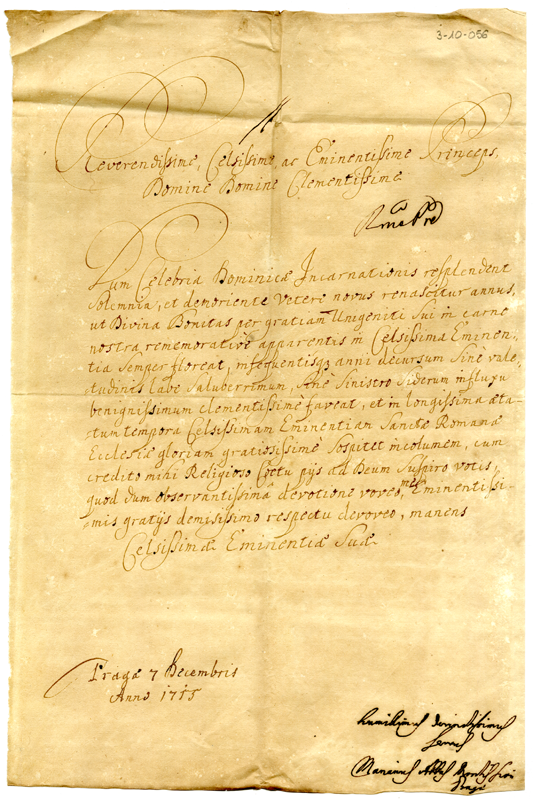 3-10-056
Reverendissime, Celsissime ac Eminentissime Princeps,
Domine Domine Clementissime.
Dum Celebria Dominicæ Incarnationis resplendent
Solemnia, et demoriente Veteri novus renascitur annus,
ut Divina Bonitas per gratiam Unigeniti Sui in carne
nostra rememorativè apparentis in Celsissima Eminen-
tia Semper floreat, insequentisq3 anni decursum Sine vale-
tudinis labe Saluberrimum, sine Sinistro Siderum influxu
benignissimum clementissimè faveat, et in longissima æta-
tum tempora Celsissimam Eminentiam Sanctæ Romanæ
Ecclesiæ gloriam gratiosissimè Sospitet incolumem, cum
credito mihi Religioso Cœtu pijs ad Deum Suspiro votis,
quod dum observantissimâ devotione voveo, me Eminentissi-
mis gratijs demississimo respectu devoveo, manens
Celsissimæ Eminentiæ Suæ
Pragæ 7 Decembris
Anno 1715
Marianus Abbas